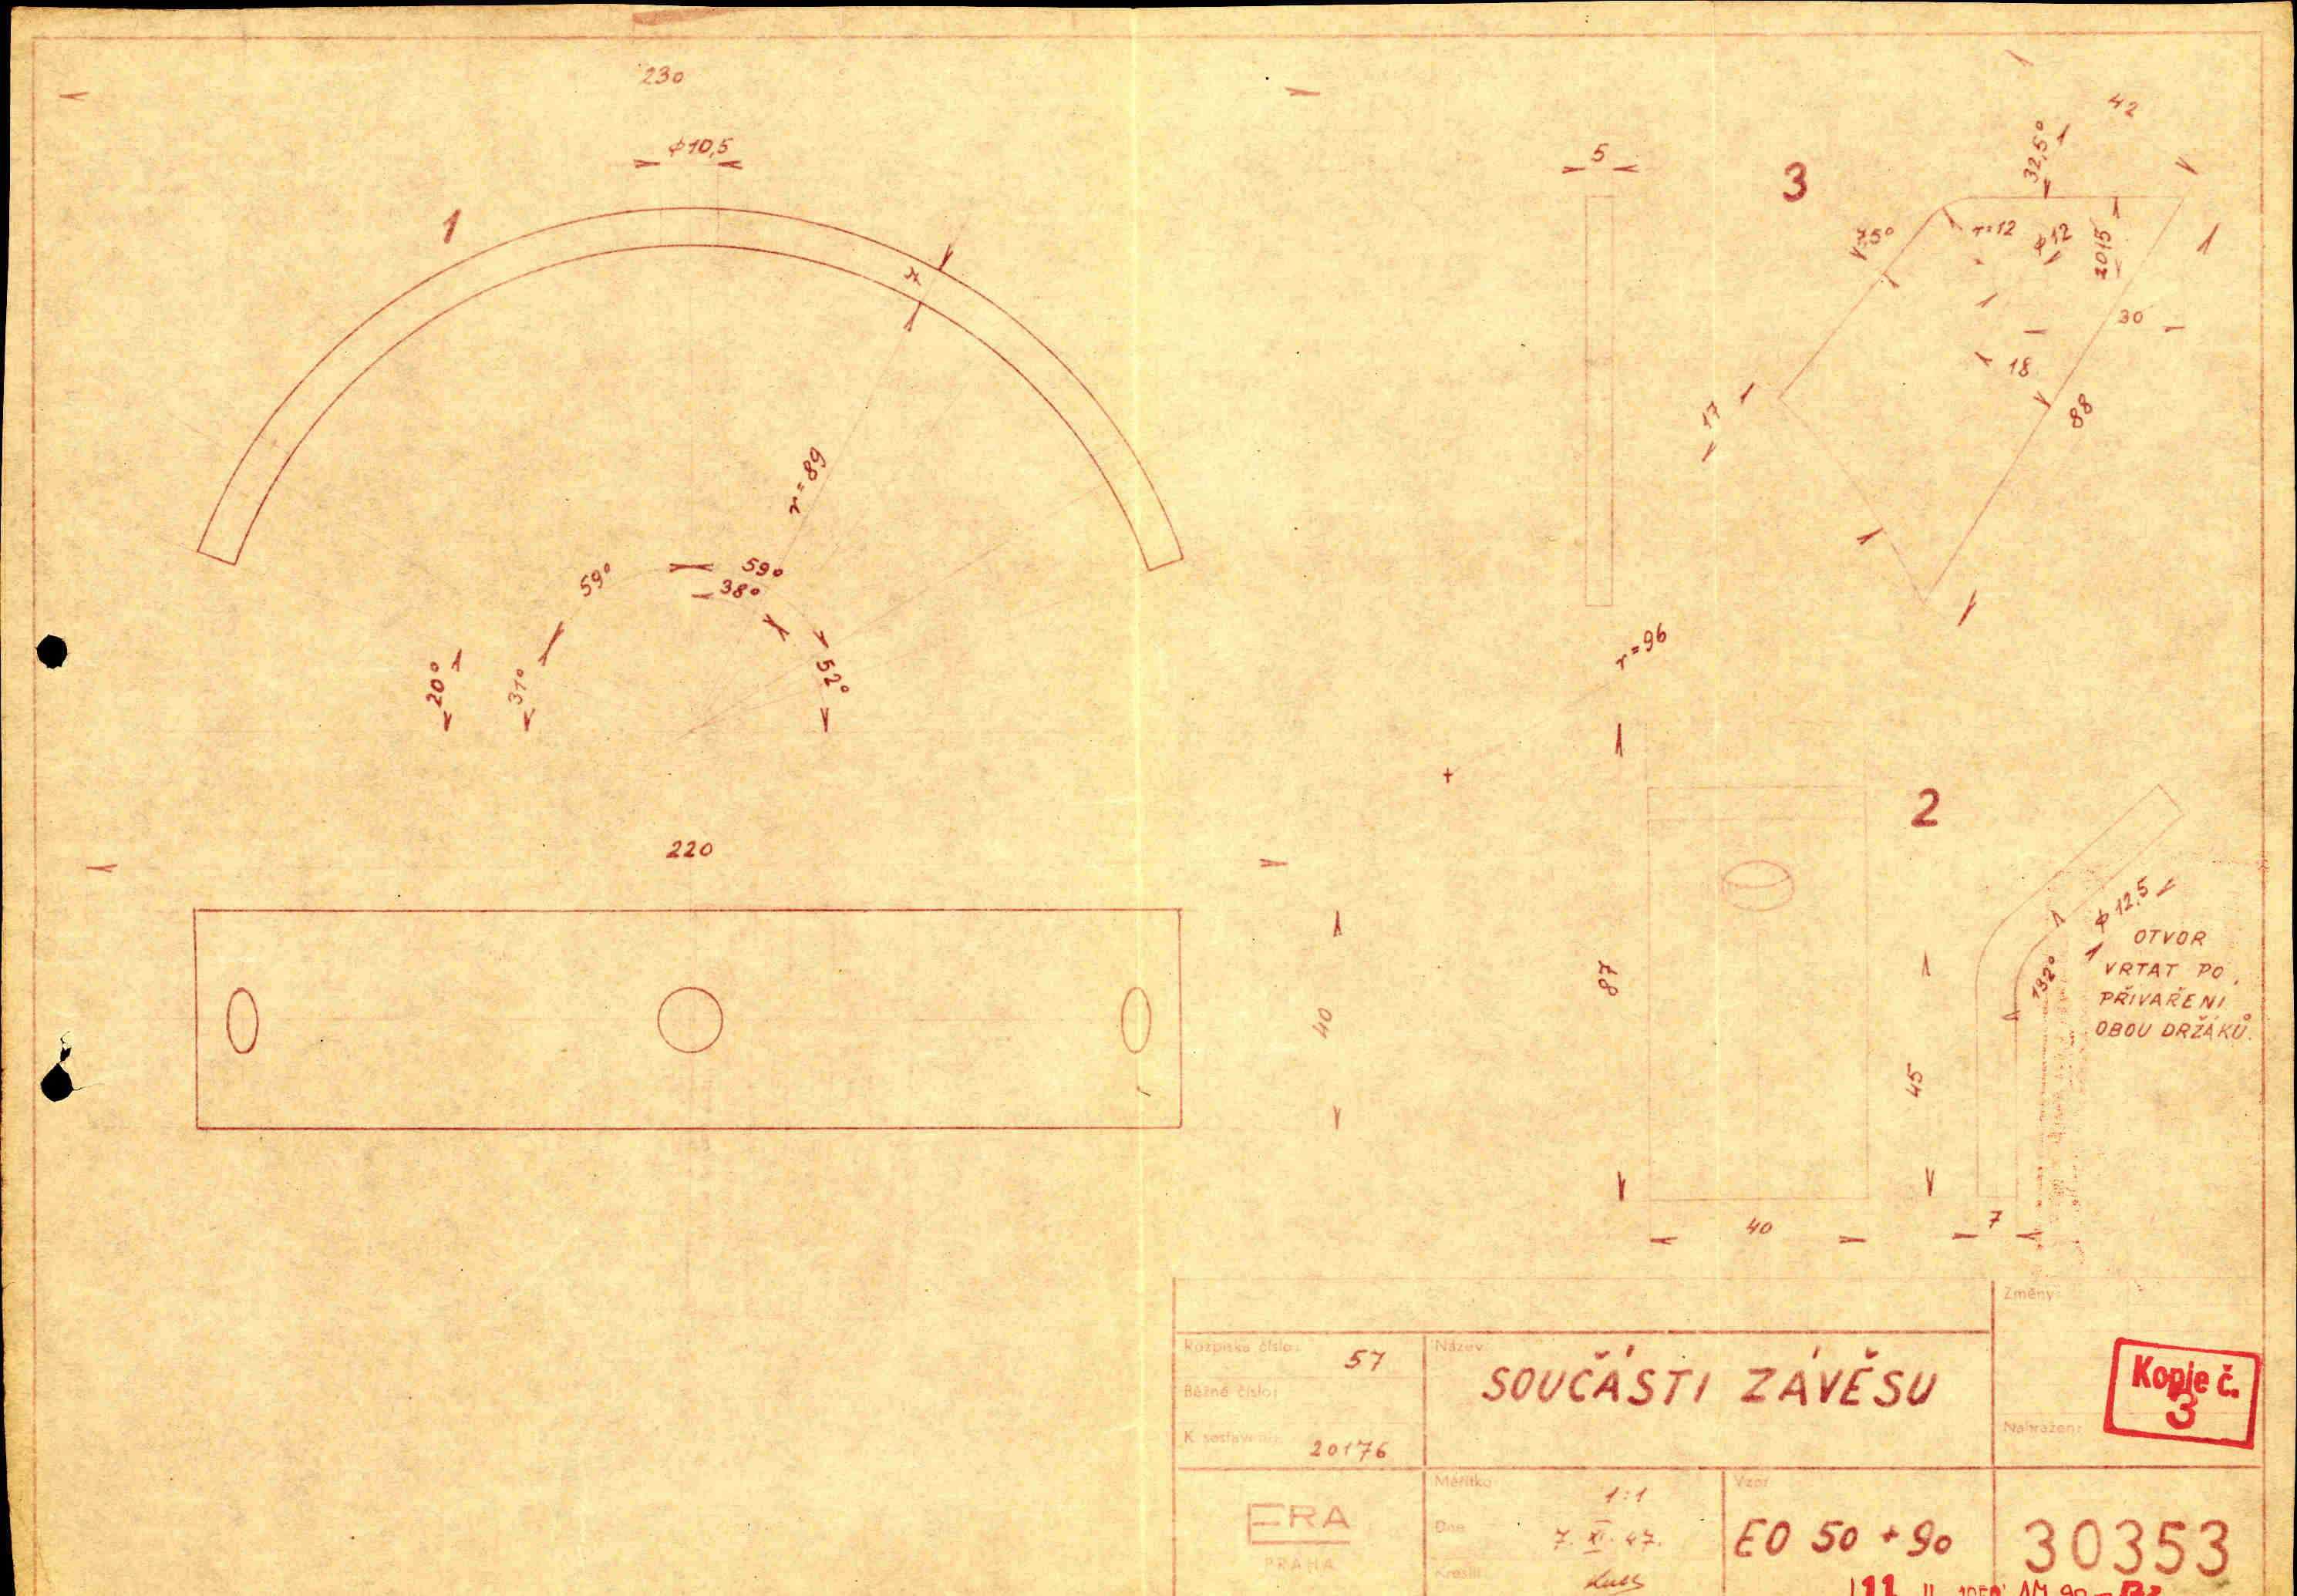 230
φ10,5
1
7
r=89
59°
59°
38°
20°
31°
52°
220
40
5
3
42
32,5°
7,5°
r=12
φ12
20,15
30
18
17
88
r=96
2
87
45
132°
φ12,5
OTVOR
VRTAT PO
PŘIVAŘENÍ
OBOU DRŽÁKŮ.
40
7
Změny:
Rozpiska číslo: 57
Název:
SOUČÁSTI ZÁVĚSU
Běžné číslo:
K sestavení: 20176
Kopie č.
3
Nahrazen:
ERA
PRAHA
Měřítko 1:1
Dne 7. XI. 47.
Kreslil:
Vzor
EO 50 + 90
30353